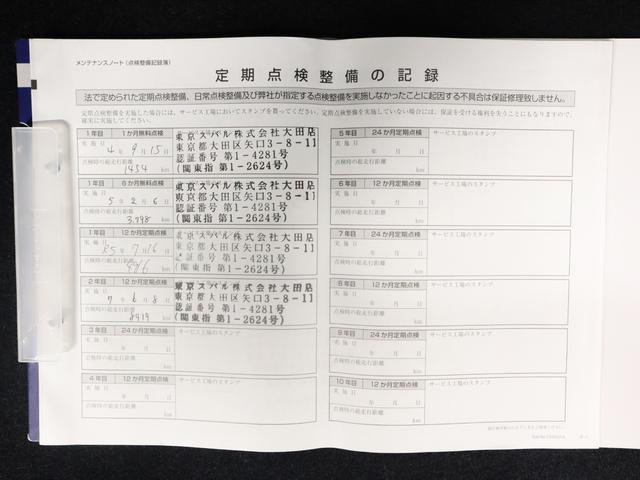 メンテナンスノート（点検整備記録簿）
定期点検整備の記録
法で定められた定期点検整備、日常点検整備及び弊社が指定する点検整備を実施しなかったことに起因する不具合は保証修理致しません。
定期点検整備を実施した場合には、サービス工場においてスタンプを貰ってください。定期点検整備を実施していない場合には、保証を受ける権利を失うことにもなりますので、
確実に実施してください。
1年目 1か月無料点検
実施日
4年 9月 15日
点検時の総走行距離
1454 km
東京スバル株式会社大田店
東京都大田区矢口3-8-11
認証番号 第1-4281号
(関東指 第1-2624号)
1年目 6か月無料点検
実施日
5年 2月 6日
点検時の総走行距離
3,998 km
東京スバル株式会社大田店
東京都大田区矢口3-8-11
認証番号 第1-4281号
(関東指 第1-2624号)
1年目 12か月定期点検
実施日
R5年 7月 16日
点検時の総走行距離
km
東京スバル株式会社大田店
東京都大田区矢口3-8-11
認証番号 第1-4281号
(関東指 第1-2624号)
2年目 12か月定期点検
実施日
7年 6月 8日
点検時の総走行距離
8919 km
東京スバル株式会社大田店
東京都大田区矢口3-8-11
認証番号 第1-4281号
(関東指 第1-2624号)
3年目 12か月定期点検
サービス工場のスタンプ
実施日
年 月 日
点検時の総走行距離
km
4年目 12か月定期点検
サービス工場のスタンプ
実施日
年 月 日
点検時の総走行距離
km
5年目 24か月定期点検
サービス工場のスタンプ
実施日
年 月 日
点検時の総走行距離
km
6年目 12か月定期点検
サービス工場のスタンプ
実施日
年 月 日
点検時の総走行距離
km
7年目 24か月定期点検
サービス工場のスタンプ
実施日
年 月 日
点検時の総走行距離
km
8年目 12か月定期点検
サービス工場のスタンプ
実施日
年 月 日
点検時の総走行距離
km
9年目 24か月定期点検
サービス工場のスタンプ
実施日
年 月 日
点検時の総走行距離
km
10年目 12か月定期点検
サービス工場のスタンプ
実施日
年 月 日
点検時の総走行距離
km